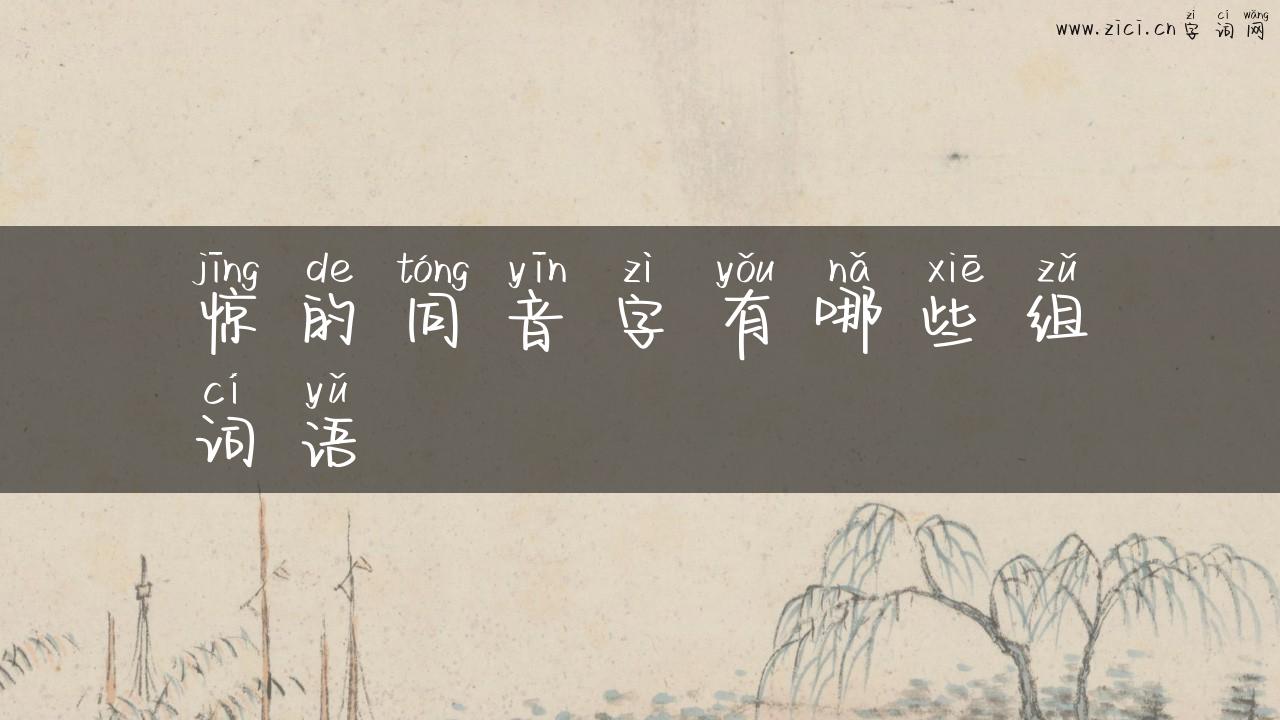 zì cí wǎng
www.zici.cn 字词网
jīng de tóng yīn zì yǒu nǎ xiē zǔ
惊的同音字有哪些组
cí yǔ
词语